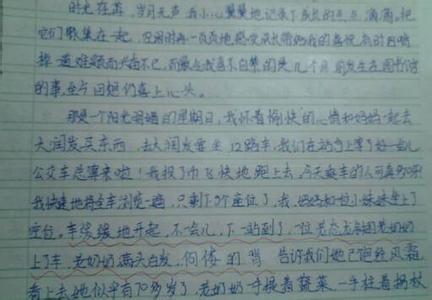 时光荏苒，岁月无声，我小心翼翼地记录下成长的点点滴滴，把
它们聚集在一起，空闲时再一页页地感受成长带给我的喜悦，有时因嘴
难 而 不已，而最 我 的是几个月前发生在 的
的事，至今回想仍喜上心头。
那是一个阳光明媚的星期日，我怀着愉快的心情和妈妈一起去
大润发买东西，去大润发要坐12路车，我们在站台上等了好一会儿
公交车总算来啦！我投了币飞快地跑上去，今天乘车的人可真多呀
我快速地将全车浏览一遍，只剩下3个座位了，我、妈妈和一位小妹妹坐上了
座位，车缓缓地开起，不一会儿，下一站到了，一位老态龙钟的老奶奶
上了车，老奶奶满头白发，佝偻的背，告诉我们她已饱经风霜
看上去她似乎有70多岁了，老奶奶一手提着蔬菜，一手拄着拐杖